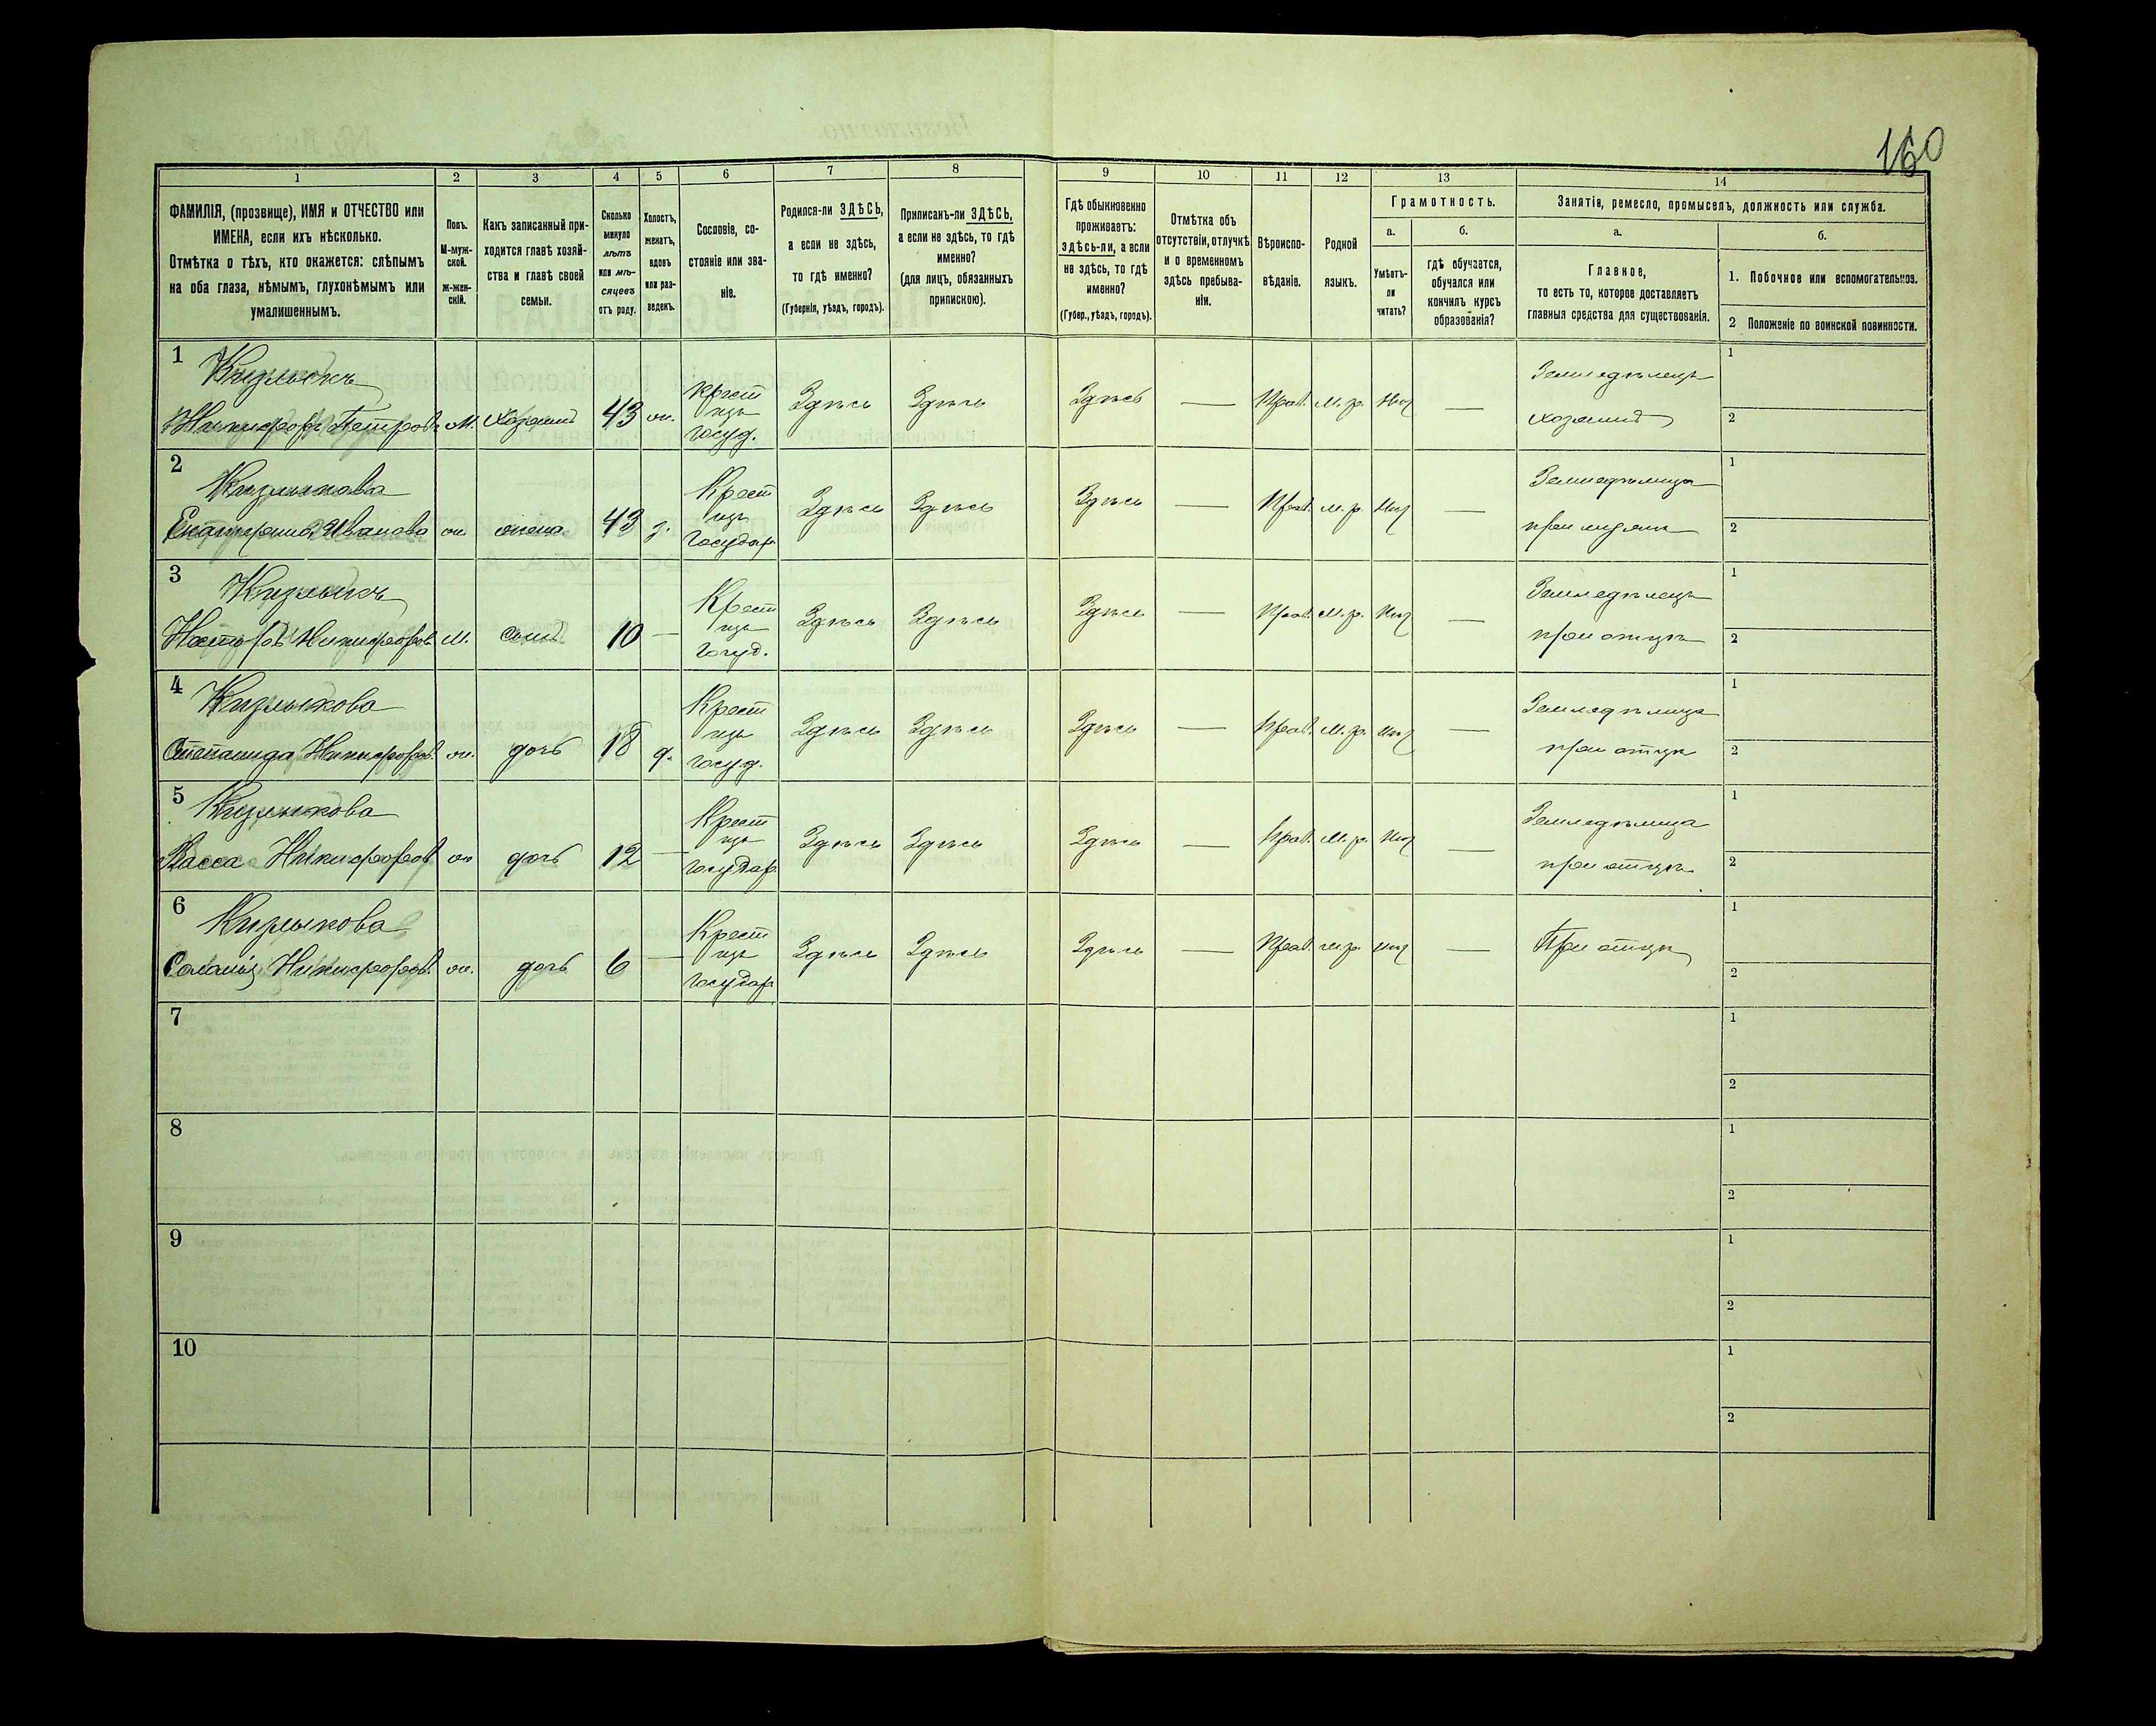 160
1 2 3 4 5 6 7 8 9 10 11 12 13 14
ФАМИЛІЯ, (прозвище), ИМЯ и ОТЧЕСТВО или
ИМЕНА, если ихъ нѣсколько.
Отмѣтка о тѣхъ, кто окажется: слѣпымъ
на оба глаза, нѣмымъ, глухонѣмымъ или
умалишеннымъ.
Полъ.
М-муж-
ской.
ж-жен-
скій.
Какъ записанный при-
ходится главѣ хозяй-
ства и главѣ своей
семьи.
Сколько
минуло
лѣтъ
или мѣ-
сяцевъ
отъ роду.
Холостъ,
женатъ,
вдовъ
или раз-
веденъ.
Сословіе, со-
стояніе или зва-
ніе.
Родился-ли ЗДѢСЬ,
а если не здѣсь,
то гдѣ именно?
(Губернія, уѣздъ, городъ).
Приписанъ-ли ЗДѢСЬ,
а если не здѣсь, то гдѣ
именно?
(для лицъ, обязанныхъ
припискою).
Гдѣ обыкновенно
проживаетъ:
здѣсь-ли, а если
не здѣсь, то гдѣ
именно?
(Губер., уѣздъ, городъ).
Отмѣтка объ
отсутствіи, отлучкѣ
и о временномъ
здѣсь пребыва-
ніи.
Вѣроиспо-
вѣданіе.
Родной
языкъ.
Грамотность.
а.
Умѣетъ-
ли
читать?
б.
гдѣ обучается,
обучался или
кончилъ курсъ
образованія?
Занятія, ремесло, промыселъ, должность или служба.
а.
Главное,
то есть то, которое доставляетъ
главныя средства для существованія.
б.
1. Побочное или вспомогательное.
2 Положеніе по воинской повинности.
1
Никифоръ Петровъ м. хозяинъ 43 ж. Крест изъ госуд. Здѣсь Здѣсь Здѣсь — Прав. м. р. — Земледѣлецъ хозяинъ
1
2
2
Екатерина Иванова ж. жена 43 з. Крест изъ государ. Здѣсь Здѣсь Здѣсь — Прав. м. р. —
1
2
3
Никифоровъ м. сынъ 10 — Крест изъ госуд. Здѣсь Здѣсь Здѣсь — Прав. м. р. — Земледѣлецъ при отцѣ
1
2
4
Степанида Никифоров. ж. дочь 18 д. Крест изъ госуд. Здѣсь Здѣсь Здѣсь — Прав. м. р. — Земледѣлица при отцѣ
1
2
5
Васса Никифоров. ж дочь 12 — Крест изъ государ. Здѣсь Здѣсь Здѣсь — Прав. м. р. — Земледѣлица при отцѣ
1
2
6
Никифоров. ж. дочь 6 — Крест изъ государ. Здѣсь Здѣсь Здѣсь — Прав. м. р. — При отцѣ
1
2
7
1
2
8
1
2
9
1
2
10
1
2